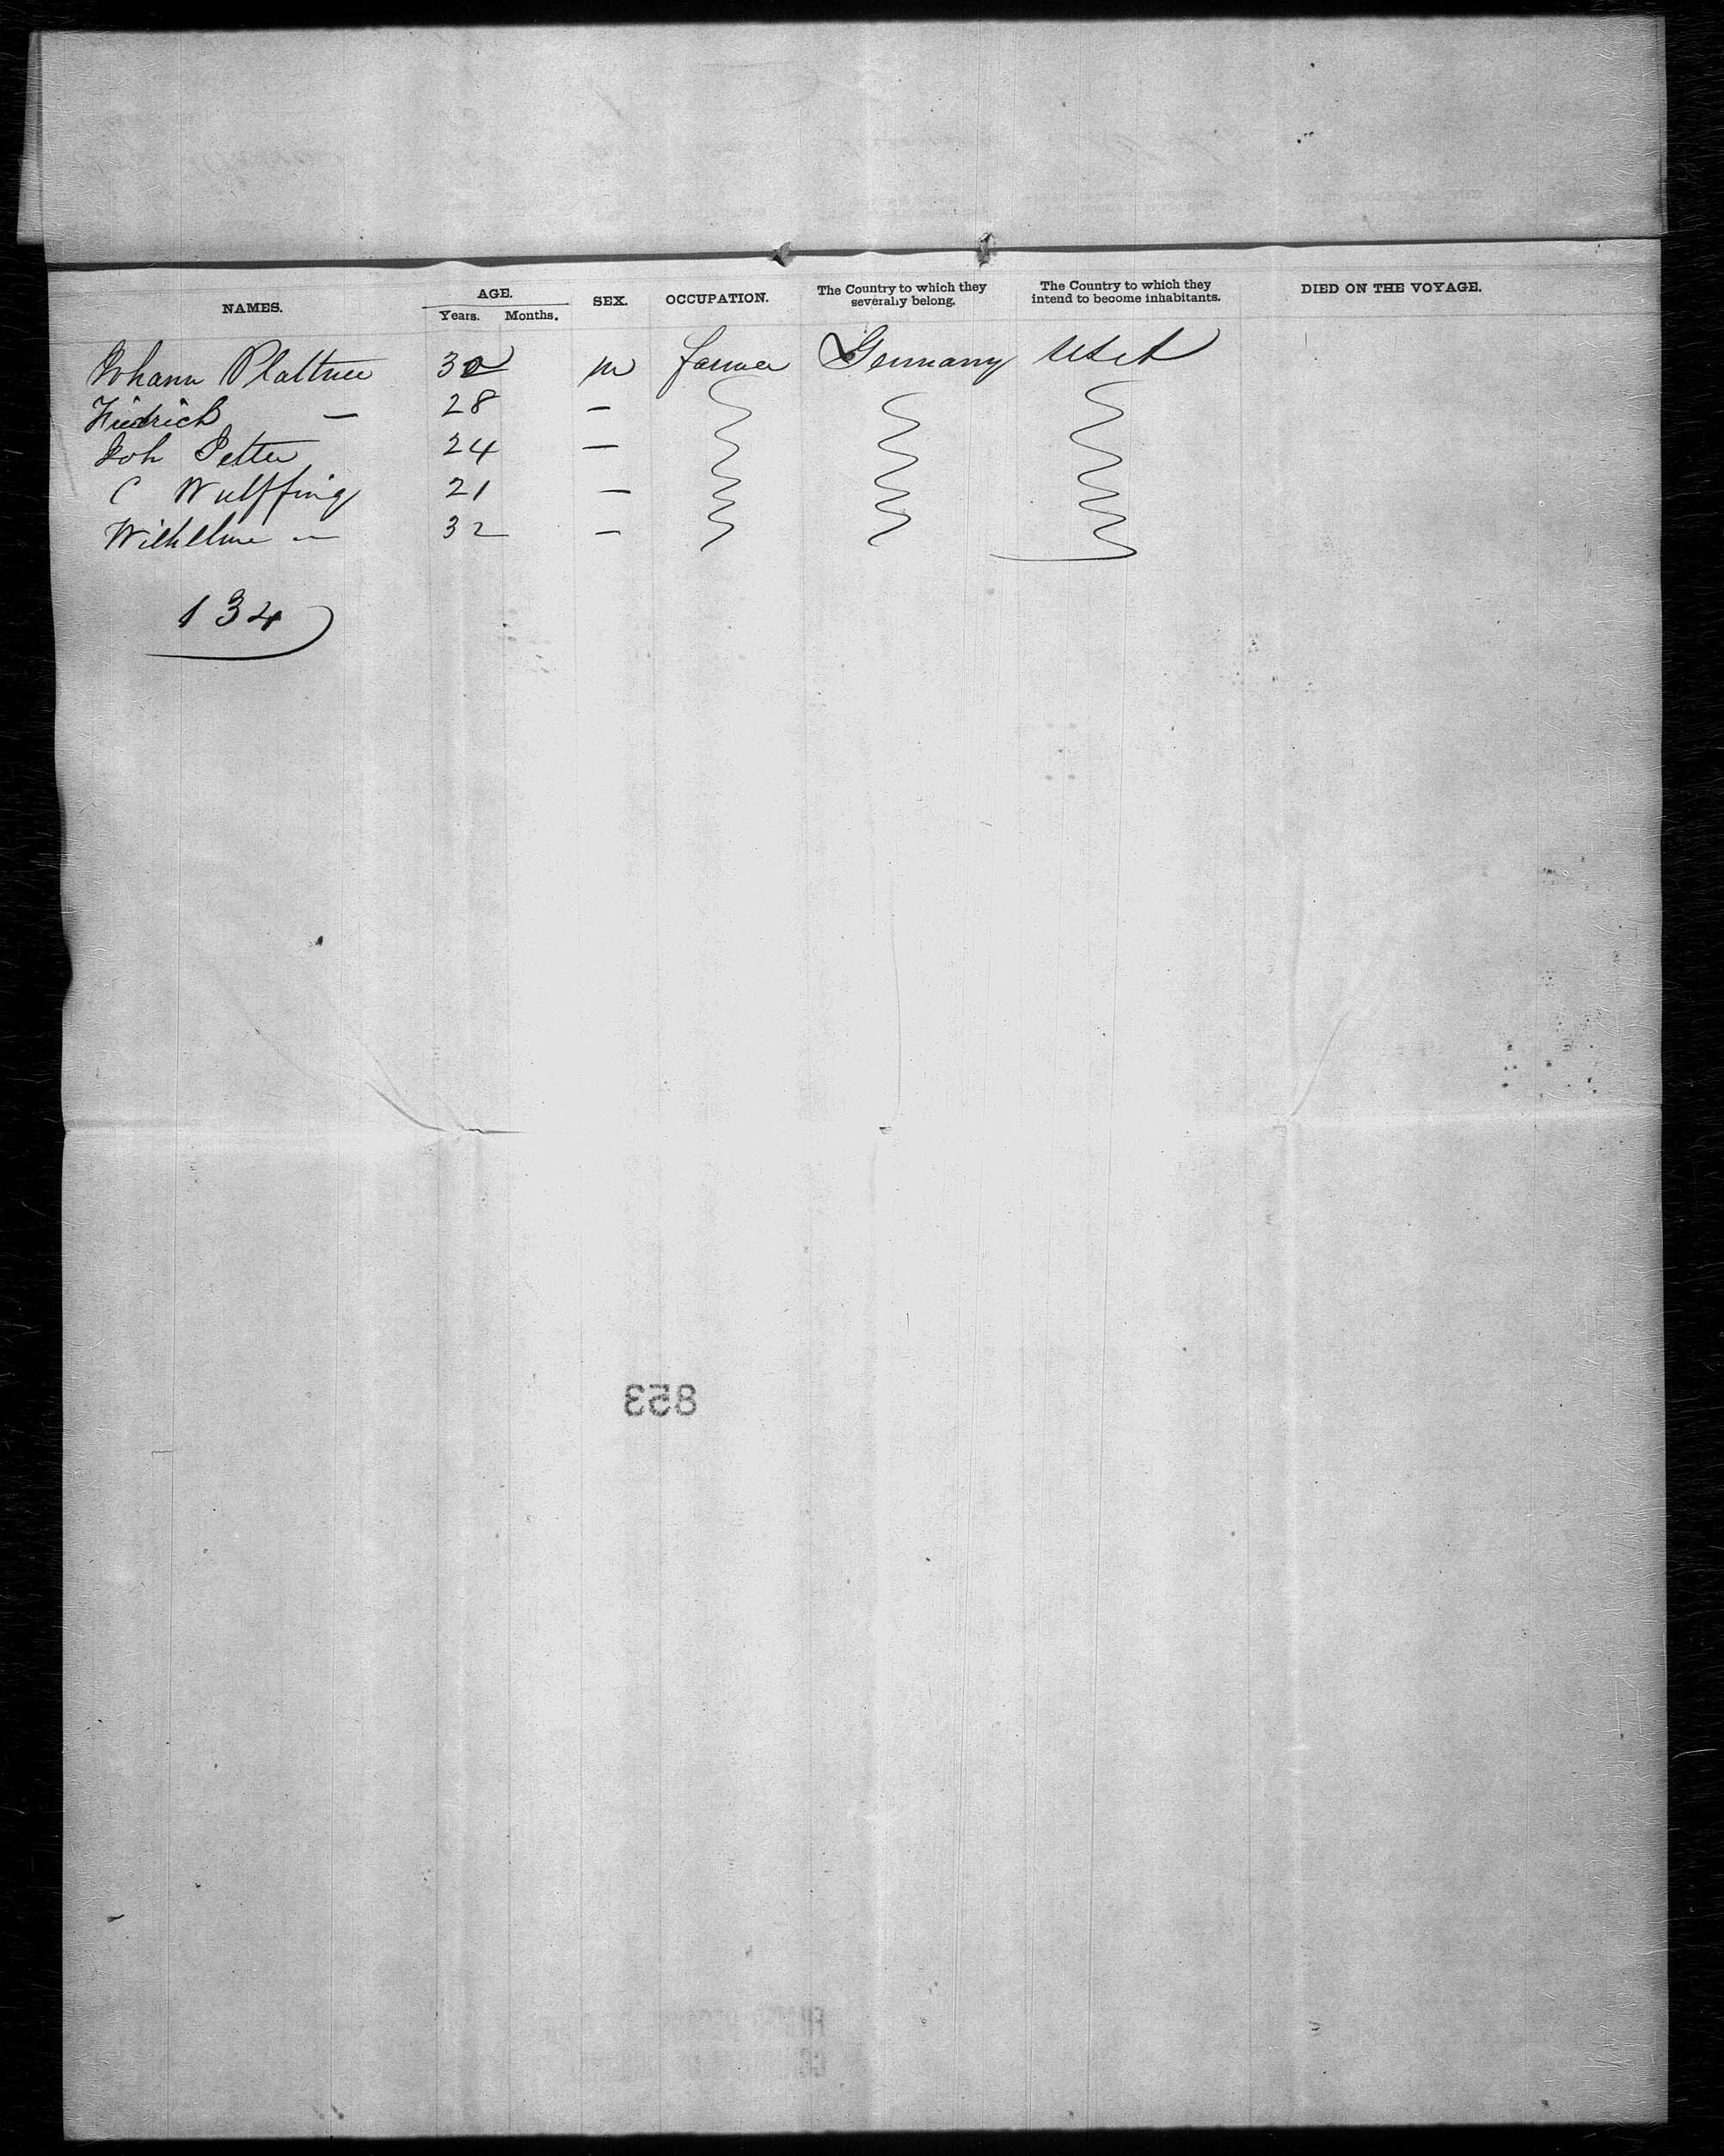 NAMES. AGE. Years. Months. SEX. OCCUPATION. The Country to which they severally belong. The Country to which they intend to become inhabitants. DIED ON THE VOYAGE.
Johann Plattner 30 m farmer Germany USA
Fiedrich — 28 —
Joh Petter 24 —
C Wulffing 21 —
Wilhelme — 32 —
134
853